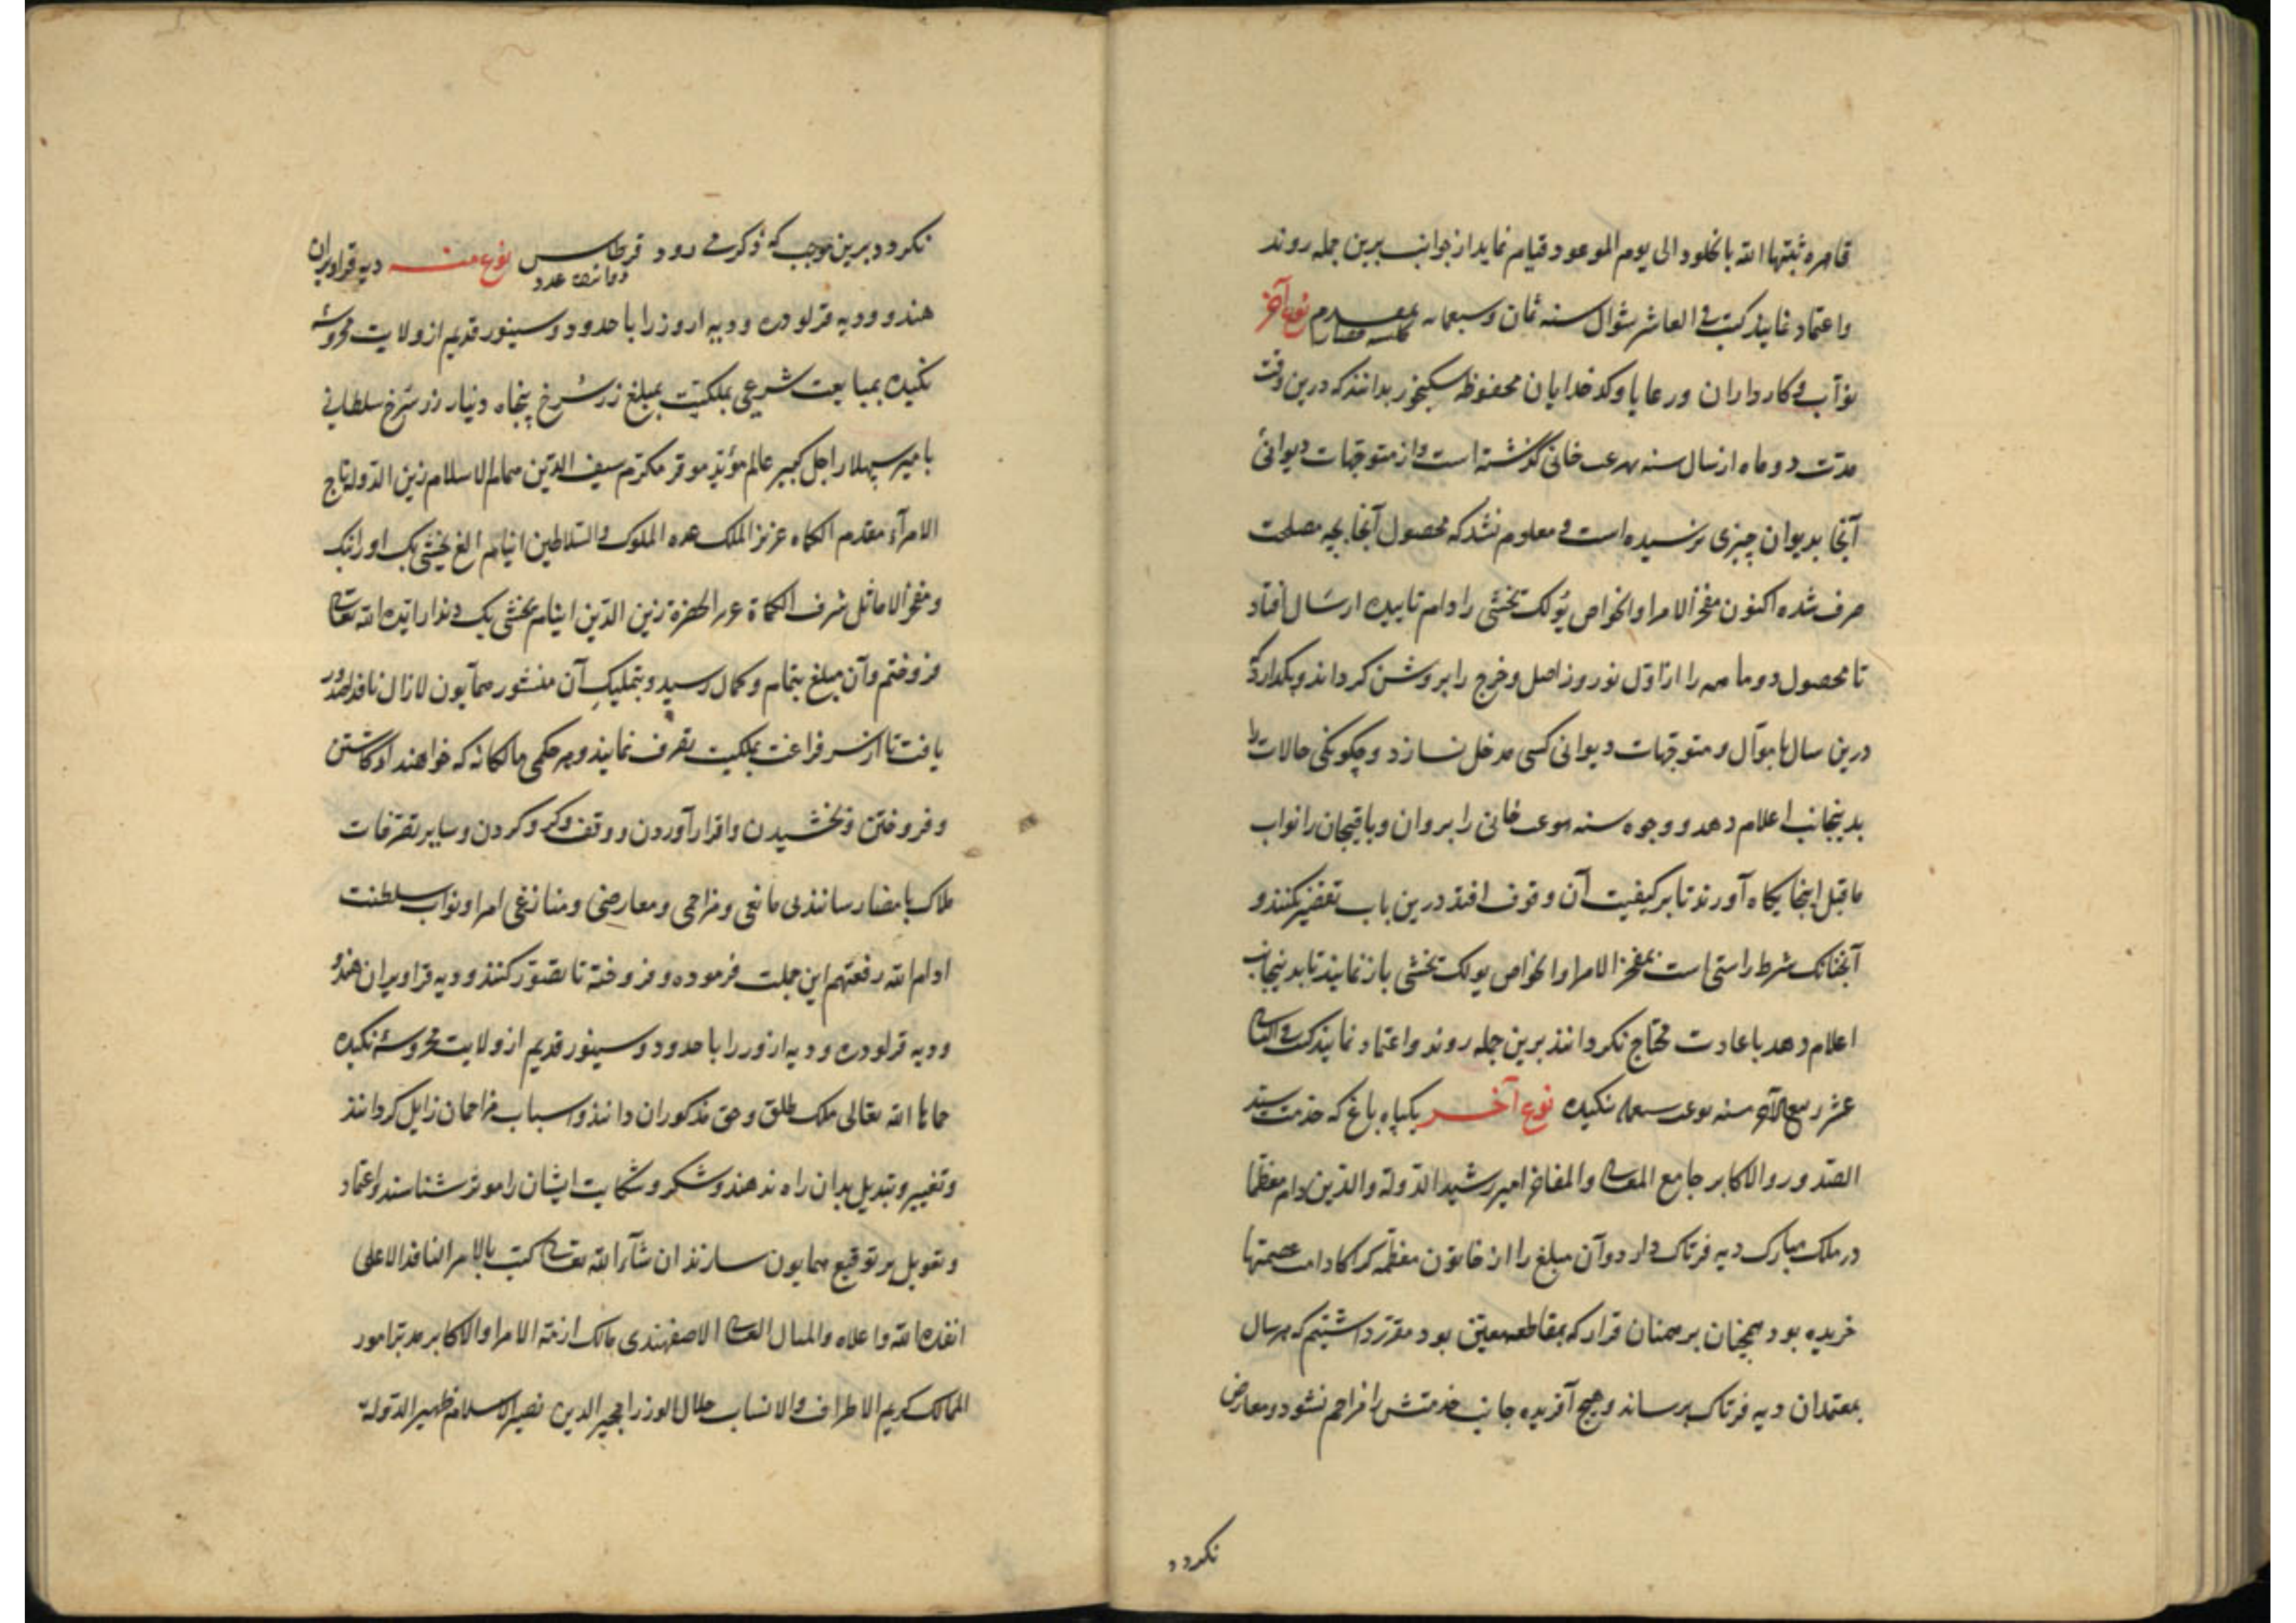 قاهره ثبتها الله بالخلود الی یوم الموعود قیام نماید از جوانب برین جمله روند
واعتماد نمایند کتب فی العاشر شوال سنه ثمان وسبعمایه نوع آخر
نوّاب و کارداران ورعایا وکدخدایان محفوظه بدانند که درین وقت
مدّت دو ماه از سال سنه خانی گذشته است واز متوجّهات دیوانئ
آنجا بدیوان چیزی نرسیده است و معلوم نشد که محصول آنجا بچه مصلحت
صرف شده اکنون مفخر الامرا والخواص یولک بخشی را دام تاییده ارسال افتاد
تا محصول دو ماهه را از اوّل نوروز اصل وخرج را بروشن کرداند وبکدارد که
درین سال باموآل و متوجّهات دیوانی کسی مدخل نسازد وچکونکی حالات را
بدینجانب اعلام دهد و وجوه سنه خانی را بروان وباقیجان را نواب
ماقبل اینجایکاه آورند تا بر کیفیت آن وقوف افتد درین باب تقصیر نکنند و
آنچنانک شرط راستی است بمفخر الامرا والخواص یولک بخشی باز نمایند تا بدینجانب
اعلام دهد باعادت محتاج نکردانند برین جمله روند واعتماد نمایند کتب فی الثانی
عشر ربیع الآخر سنه سبعمایه نکیده نوع آخر یکپاه باغ که خدمت سیّد
الصّدور والاکابر جامع المعالی والمفاخر امیر رشید الدّولة والدّین دام معظّما
در ملک مبارک دیه فرتاک دارد وآن مبلغ را از خاتون معظّمه کراکا دامت عصمتها
خریده بود همچنان بر همنان قرار که بمقاطعه معیّن بود مقرّر داشتیم که هر سال
بمعتمدان دیه فرتاک برساند وهیچ آفریده جانب خدمتش را مزاحم نشود ومعارض
نکردد
نکردد وبرین موجب که ذکر می رود قرطاس نوع منه دیه قراویران
عدد
هندو ودیه قرلودره ودیه اروز را با حدود وسینور قدیم از ولایت محروسهٔ
نکیده بمبایعت شرعی بملکیّت بمبلغ زر سُرخ پنجاه دنیار زر سُرخ سلطانی
بامیر سپهلار اجل کبیر عالم مؤیّد موقر مکرّم سیف الدّین صمام الاسلام زین الدّوله تاج
الامرآء مقدم الکماه عزیز الملک عمده الملوک والسّلاطین اینام الغ بخشی بک اورانبک
ومفخر الاماثل شرف الکماة الحضرة زین الدّین اینام بخشی بک دندار ایّده الله تعالی
فروختم وآن مبلغ بتمام وکمال رسید وبتملیک آن منشور همآیون لازال نافذا صدور
یافت تا از سر فراغت بملکیت تصرف نمایند وهر حکمی مالکانه که خواهند از کاشتن
وفروختن وبخشیدن واقرار آوردن ووقف وکرو کردن وسایر تصرّفات
ملاک بامضا رسانند بی مانعی ومزاحمی ومعارضی ومنازعی امرا ونواب سلطنت
ادام الله رفعتهم این جملت فرموده وفروخته تا تصوّر کنند ودیه قراویران هندو
ودیه قرلودره ودیه ازور را با حدود وسینور قدیم از ولایت محروسهٔ نکیده
حماها الله تعالی ملک طلق وحق مذکوران دانند واسباب مزاحمان زایل کردانند
وتغییر وتبدیل بدان راه ندهند وشکر وشکایت ایشان را موثر شناسند واعتماد
وتعویل بر توقیع همایون سازند ان شآء الله تعالی کتب بالامر النافذ الاعلی
انفذه الله واعلاه والمثال العالی الاصفهندی مالک ازمّة الامرا والاکابر مدبّر امور
الممالک کریم الاطراف والانساب جلال الوزرا مجیر الدین نصیر الاسلام ظهیر الدّولة